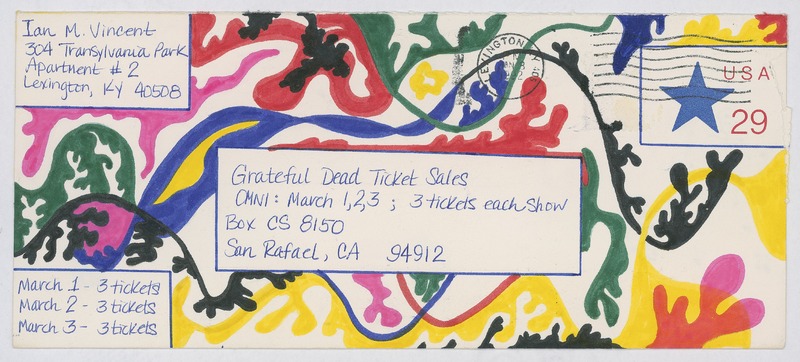 Ian M. Vincent
304 Transylvania Park
Apartment # 2
Lexington, KY 40508
LEXINGTON KY
USA
29
Grateful Dead Ticket Sales
CMNI: March 1,2,3 ; 3 tickets each show
Box CS 8150
San Rafael, CA 94912
March 1 - 3 tickets
March 2 - 3 tickets
March 3 - 3 tickets